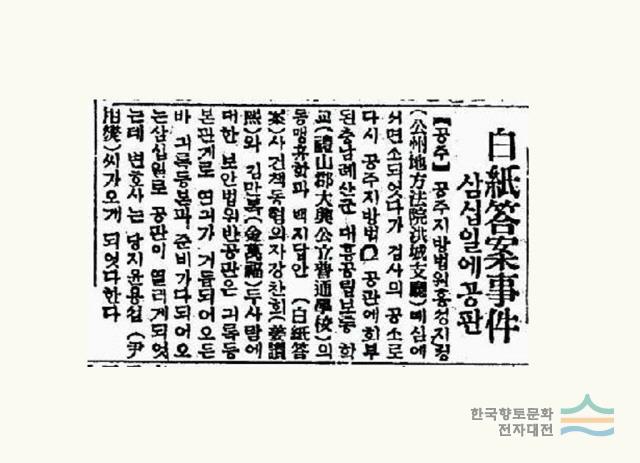 白紙答案事件
삼십일에공판
【공주】 공주지방법원홍성지령
(公州地方法院洪城支廳) 예심에
서면소되엿다가 검사의 공소로
다시 공주지방법 공판에회부
된충남례산군 대흥공립보통 학
교(禮山郡大興公立普通學校)의
동맹휴학과 백지답안 (白紙答
案)사건책동혐의자강찬희(姜讚
熙)와 김만복(金萬福)두사람에
대한 보안법위반공판은 긔록등
본관계로 연긔가 거듭되어오든
바 긔록등본과 준비가다되어오
는삼십일로 공판이 열리게되엿
는데 변호사는 당지윤용섭 (尹
用燮)씨가오게 되엿다한다
한국향토문화
전자대전